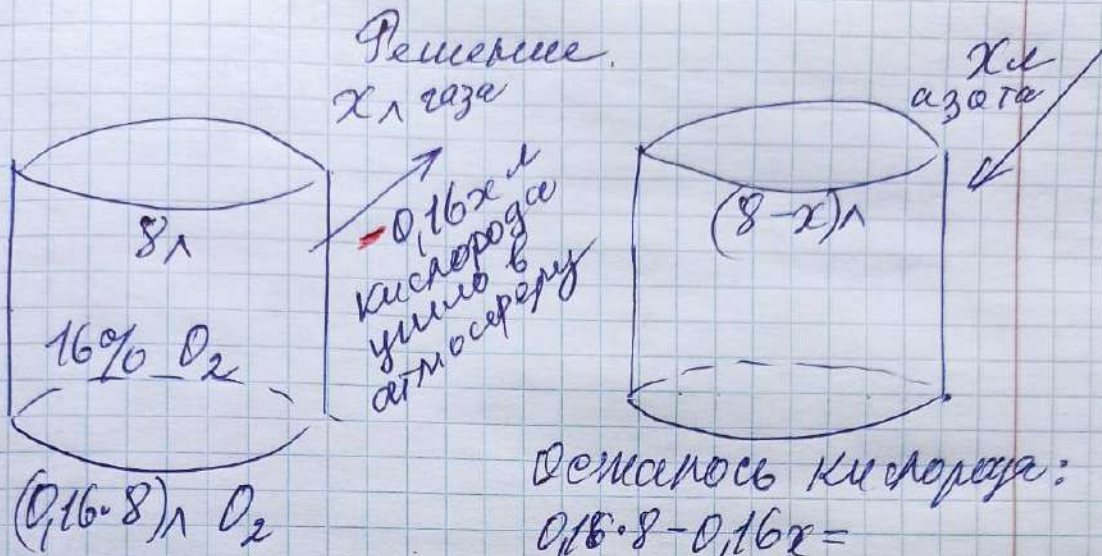 Решение.
Хл газа
8л
16% O₂
(0,16·8)л O₂
-0,16х л
кислорода
ушло в
атмосферу
Хл
азота
(8-х)л
Осталось кислорода:
0,16·8-0,16х=